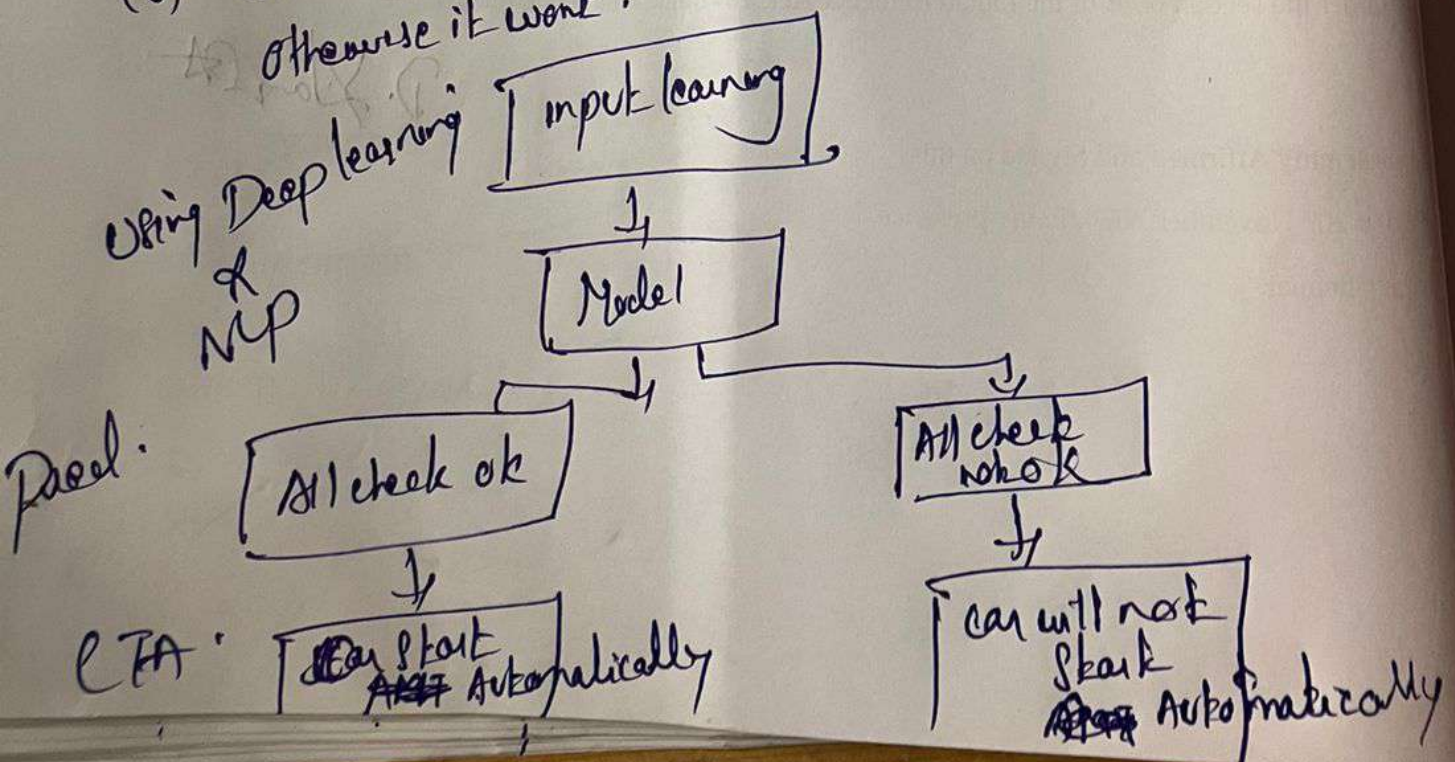 Otherwise it wont.
input learning
Using Deep learning
&
NLP
Model
All check ok
All check
not ok
Car Start
Automatically
car will not
Start
Automatically